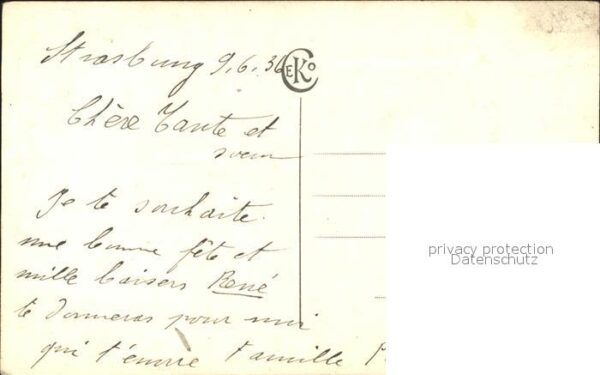 Strasbourg 9.6.36
CEKO
Chère Tante et
soeur
Je te souhaite
une bonne fête et
mille baisers René
te donneras pour moi
qui t'
famille
privacy protection
Datenschutz